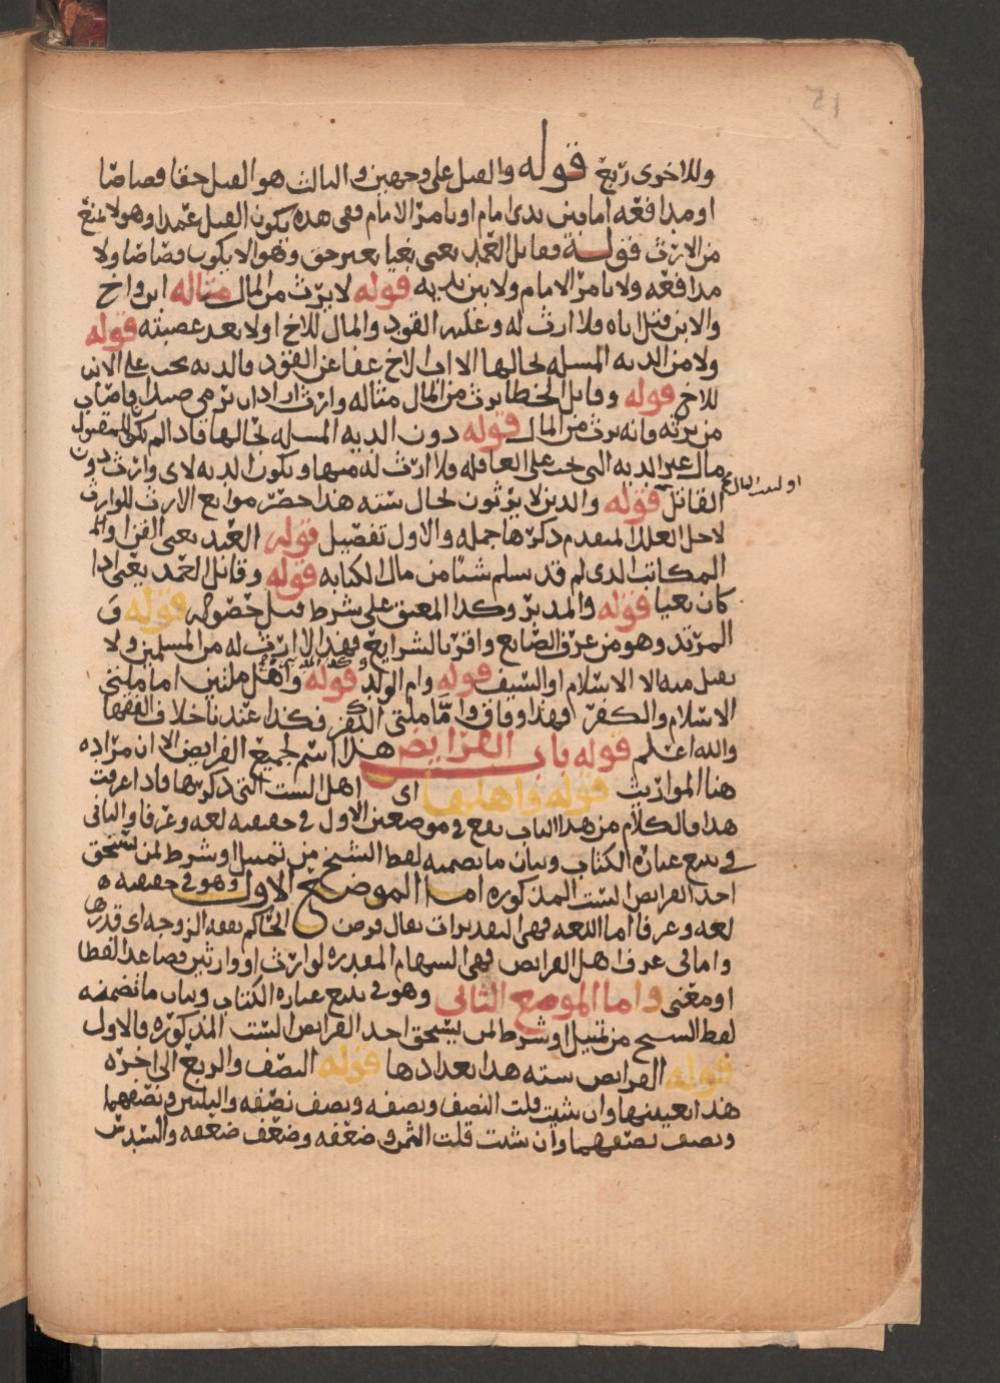 وللاخرى ربع قوله والقتل على وجهين والثالث هو القتل حقا قصاصا
او مدافعه اما بين يدي امام او بامر الامام ففي هذه يكون القتل عمدا وهو لا يمنع
من الارث قوله فقاتل العمد يعني بغيا بغير حق وهو الا يكون قصاصا ولا
مدافعه ولا بامر الامام ولا بين يديه قوله لا يرث من المال مثاله ابن واخ
والابن قتل اباه فلا ارث له وعليه القود والمال للاخ او لابعد عصبته قوله
ولا من الديه المسله بحالها الا ان الاخ عفا عن القود فالديه تجب على الابن
للاخ قوله وقاتل الخطا يرث من المال مثاله وارث اراد ان يرمي صيدا فاصاب
من يرثه فانه يرث من المال قوله دون الديه المسله بحالها فاذا لم يكن للمقتول
مال غير الديه التي تجب على العاقله فلا ارث له منها وتكون الديه لاي وارث دون
القاتل قوله والذين لا يرثون بحال سته هذا حصر موانع الارث للوارث
لاجل العلل المتقدم ذكرها جمله والاول تفصيل قوله العبد يعني القن او
المكاتب الذي لم قد يسلم شيا من مال الكتابه قوله وقاتل العمد يعني اذا
كان بغيا قوله والمدبر وكذا المعتق على شرط قبل حصوله قوله و
المرتد وهو من عرف الصانع واقر بالشرايع فهذا لا ارث له من المسلمين ولا
يقبل منه الا الاسلام او السيف قوله وام الولد قوله واهل ملتين اما ملتي
الاسلام والكفر فهذا وفاق واما ملتي الكفر فكذا عندنا خلاف الفقها
والله اعلم قوله باب الفرايض هذا اسم لجميع الفرايض الا ان مراده
هنا المواريث قوله واهلها اي اهل الست التي ذكرها فاذا عرفت
هذا فالكلام من هذا الباب يقع في موضعين الاول في حقيقته لغه وعرفا والثاني
في تتبع عباره الكتاب وبيان ما تضمنه لفظ الشيخ من تمثيل او شرط لمن يستحق
احد الفرايض الست المذكوره اما الموضع الاول وهو في حقيقته
لغه وعرفا اما اللغه فهي التقديرات يقال فرض الحاكم نفقه الزوجه اي قدرها
واما في عرف اهل الفرايض فهي السهام المقدره لوارث او وارثين فصاعدا لفظا
او معنى واما الموضع الثاني وهو في تتبع عباره الكتاب وبيان ما تضمنه
لفظ الشيخ من تمثيل او شرط لمن يستحق احد الفرايض الست المذكوره فالاول
قوله الفرايض سته هذا تعدادها قوله النصف والربع الى اخره
هذا تعيينها وان شيت قلت النصف ونصفه ونصف نصفه والثلثين ونصفهما
ونصف نصفهما وان شيت قلت الثمن وضعفه وضعف ضعفه والسدس